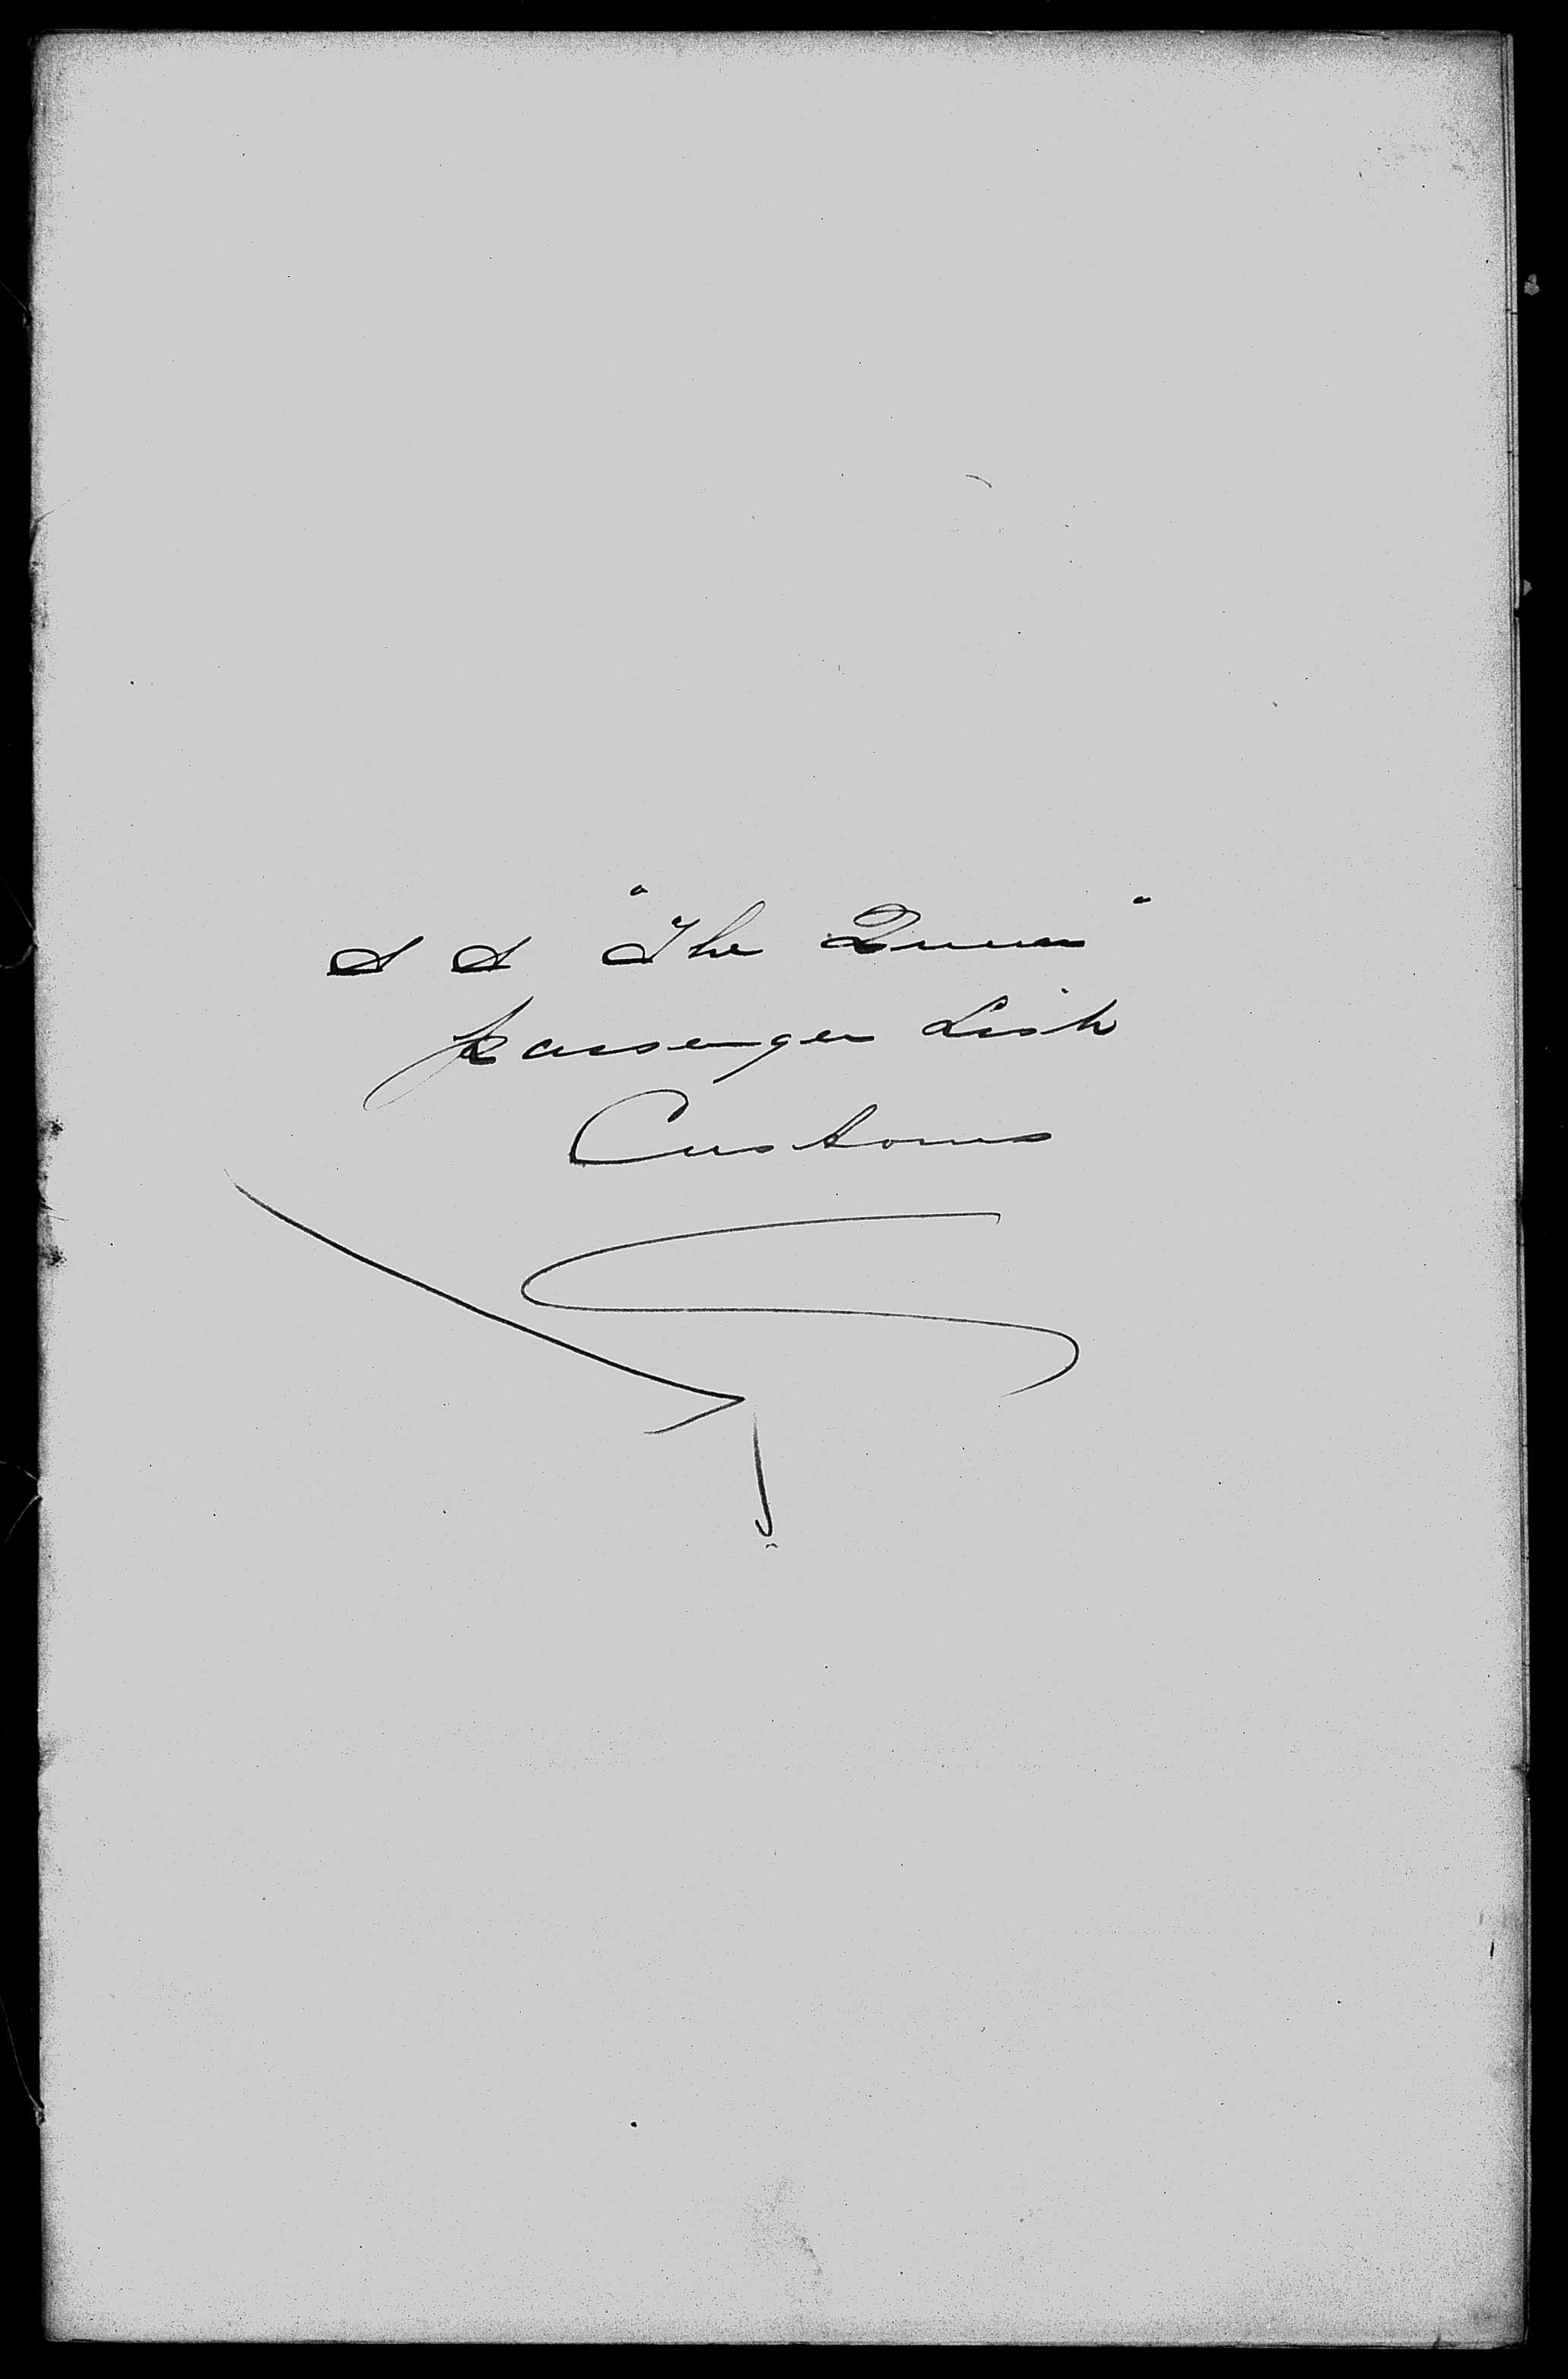 S S "The Queen"
Passenger List
Customs